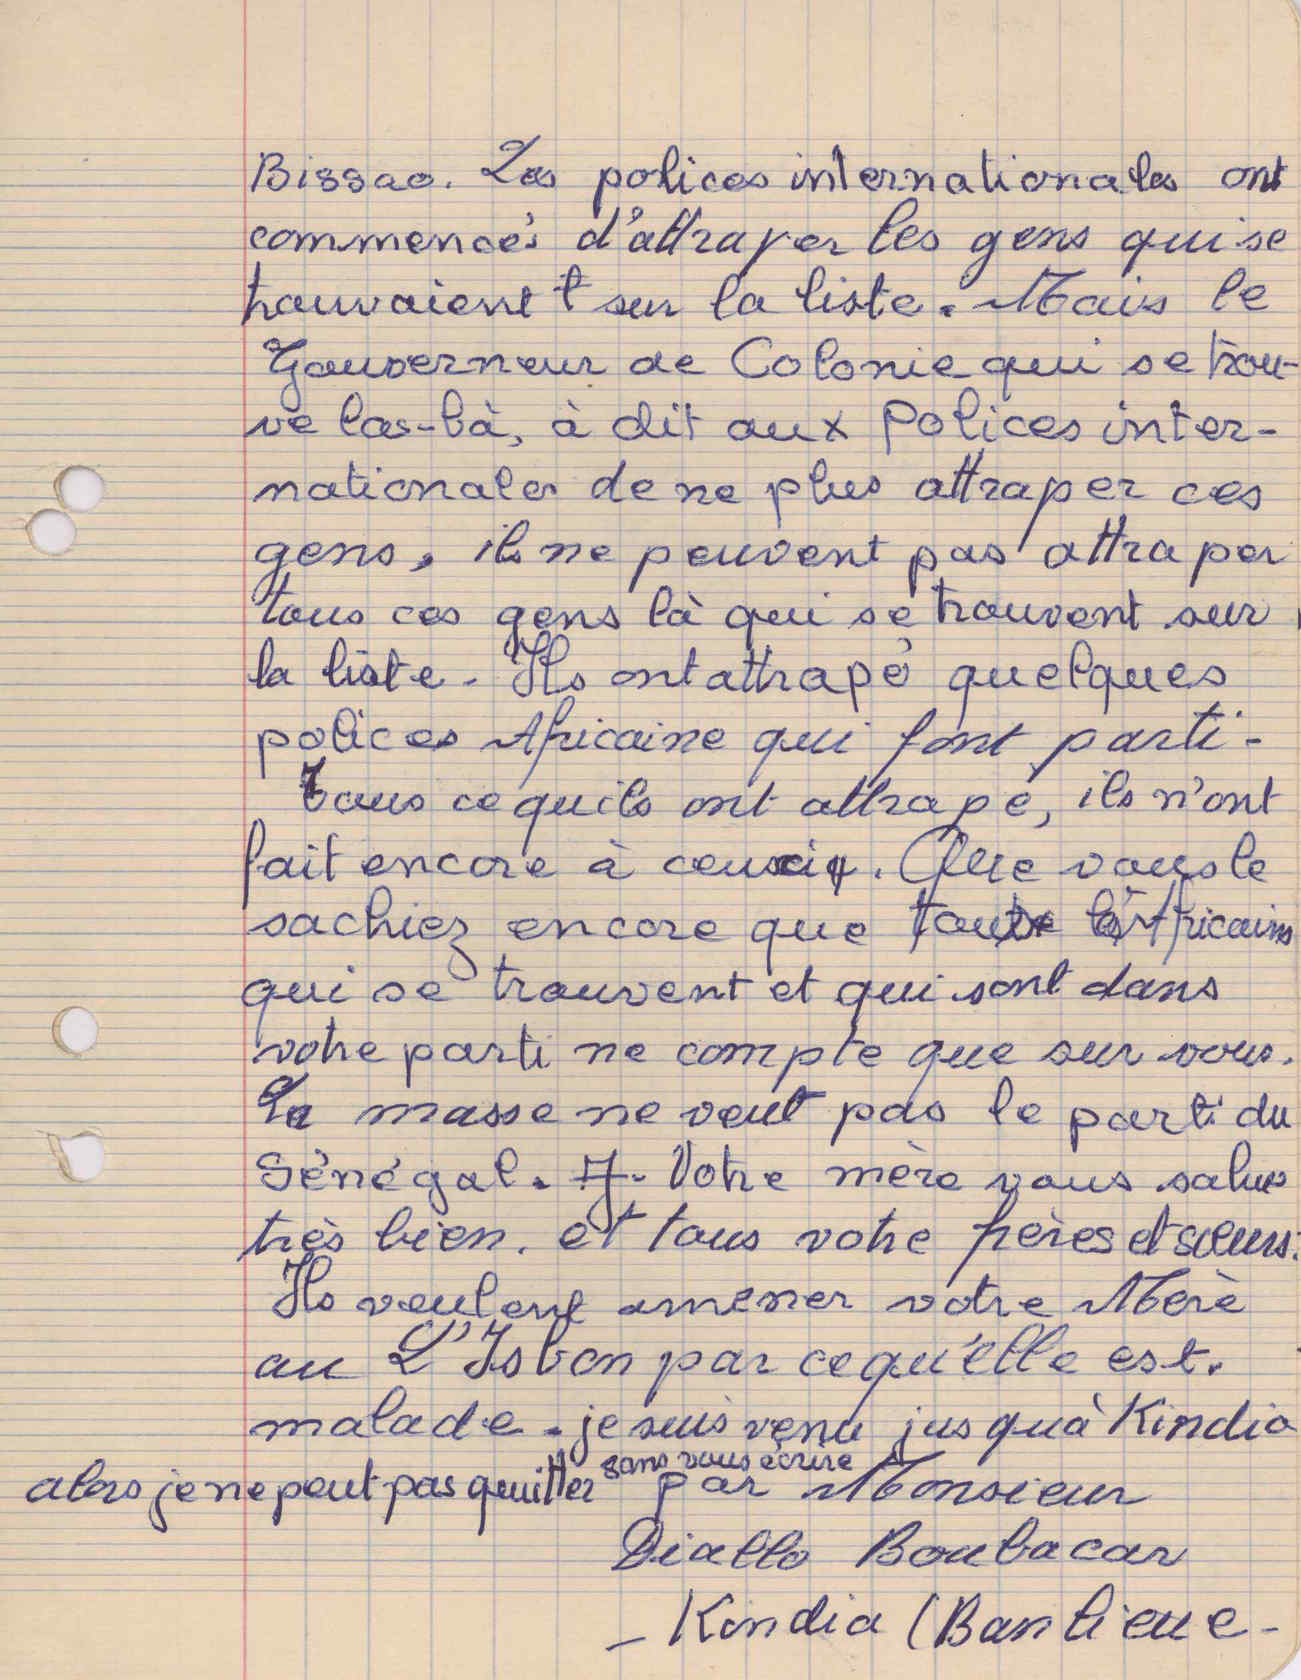 Bissao. Les polices internationales ont
commencés d'attraper les gens qui se
trouvaient sur la liste. Mais le
Gouverneur de Colonie qui se trou-
ve las-bà, à dit aux Polices inter-
nationales de ne plus attraper ces
gens, ils ne peuvent pas attraper
tous ces gens là qui se trouvent sur
la liste. Ils ont attrapé quelques
polices Africaine qui font parti-
Tous ce quils ont attrapé, ils n'ont
fait encore à ceux. Que vous le
sachiez encore que les Africains
qui se trouvent et qui sont dans
votre parti ne compte que sur vous.
La masse ne veut pas le parti du
Sénégal. Votre mère vous salue
très bien. et tous votre frères et sœurs.
Ils veulent amener votre Mère
au L'Isbon par ce qu'elle est.
malade. je suis venu jusquà Kindia
alors je ne peut pas quitter sans vous écrire par Monsieur
Diallo Boubacar
_ Kindia (Banlieue -